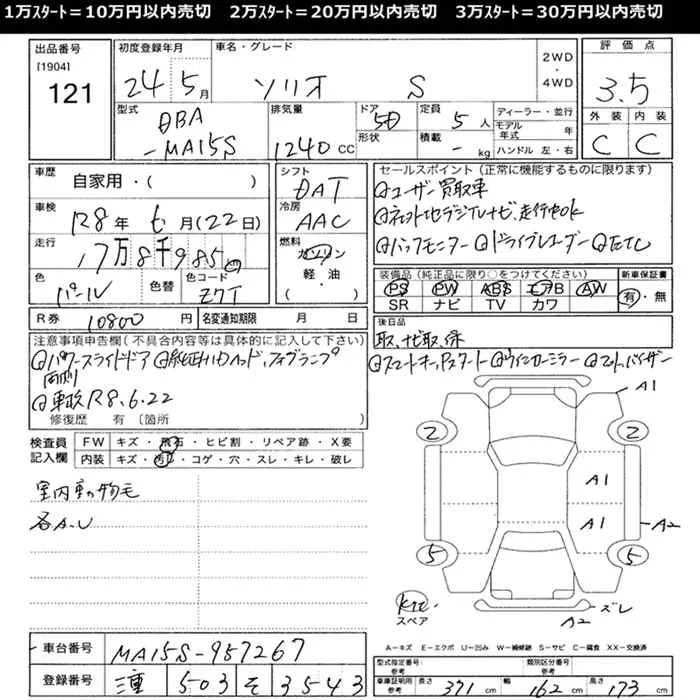 1万ｽﾀｰﾄ＝10万円以内売切　2万ｽﾀｰﾄ＝20万円以内売切　3万ｽﾀｰﾄ＝30万円以内売切
出品番号
[1904]
121
初度登録年月
24 5月
車名・グレード
ソリオ S
2WD
・
4WD
評価点
3.5
外装 内装
C C
型式
DBA
-MA15S
排気量
1240 cc
ドア
5D
形状
定員
5人
積載
- kg
ディーラー・並行
モデル年式 年
ハンドル 左・右
車歴
自家用・( )
車検
R8年 6月(22日)
走行
17万8千985
色
パール
色替
色コード
Z7T
シフト
DAT
冷房
AAC
燃料
ガソリン
軽・油
( )
セールスポイント (正常に機能するものに限ります)
ユーザー買取車
ネオトコセラジTVナビ、走行中OK
バックモニター ドライブレコーダー ETC
装備品 (純正品に限り○をつけてください)
PS PW ABS エアB AW
SR ナビ TV カワ
新車保証書
有・無
R券 10800円
名変通知期限 月 日
後日品
取、ナビ取、保
注意事項申告欄(不具合内容等は具体的に記入して下さい)
パワースライドドア 純正HIDヘッド、フォグランプ
両側
車検R8.6.22
修復歴 有 [箇所
スマートキー、Pスタート ウィンカーミラー マット、バイザー
検査員
記入欄
FW キズ・飛石・ヒビ割・リペア跡・X要
内装 キズ・汚れ・コゲ・穴・スレ・キレ・破レ
室内車の物毛
各A.U
A1
2 2
A1
A1
A2
5 5
スペア
ズレ
A2
A=キズ E=エクボ U=凹み W=補修跡 S=サビ C=腐食 XX=交換済
車台番号 MA15S-957267
登録番号 三重 503 そ 3543
型式指定番号:
参考
類別区分番号
参考
車庫証明用
参考
長さ 371 cm
幅 162 cm
高さ 173 cm